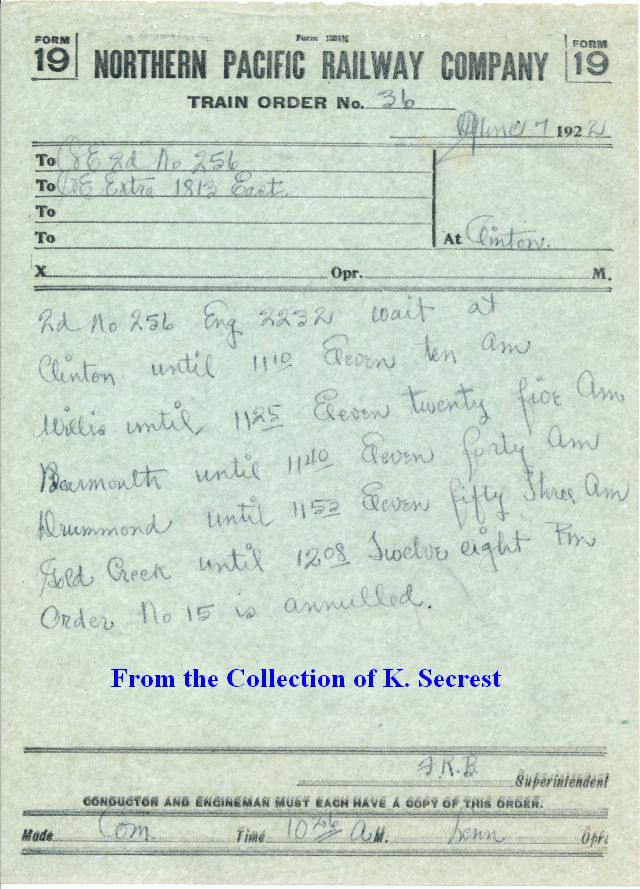 Form 15843½
FORM 19 NORTHERN PACIFIC RAILWAY COMPANY FORM 19
TRAIN ORDER No. 36
June 7 1922
To C&E 2d No 256
To C&E Extra 1813 East.
To
To At Clinton.
X Opr. M.
2d No 256 Eng 2232 wait at
Clinton until 1110 Eleven ten am
Willis until 1125 Eleven twenty five Am
Bearmouth until 1140 Eleven forty Am
Drummond until 1153 Eleven fifty Three Am
Gold Creek until 1208 Twelve eight Pm
Order No 15 is annulled.
From the Collection of K. Secrest
F.R.B. Superintendent
CONDUCTOR AND ENGINEMAN MUST EACH HAVE A COPY OF THIS ORDER.
Made Com Time 1026 A M. Opr.